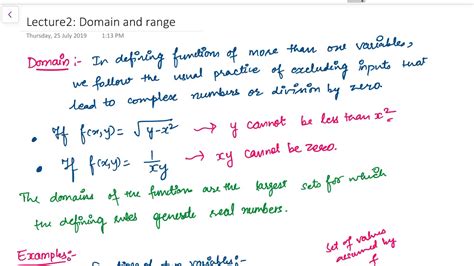 Lecture2: Domain and range
Thursday, 25 July 2019 1:13 PM
Domain :- In defining function of more than one variables,
we follow the usual practice of excluding inputs that
lead to complex numbers or division by zero.
• If f(x,y) = √(y-x²) → y cannot be less than x².
• If f(x,y) = 1/xy → xy cannot be zero.
The domains of the function are the largest sets for which
the defining rules generate real numbers.
Examples:-
variables:-
set of values
assumed by
f